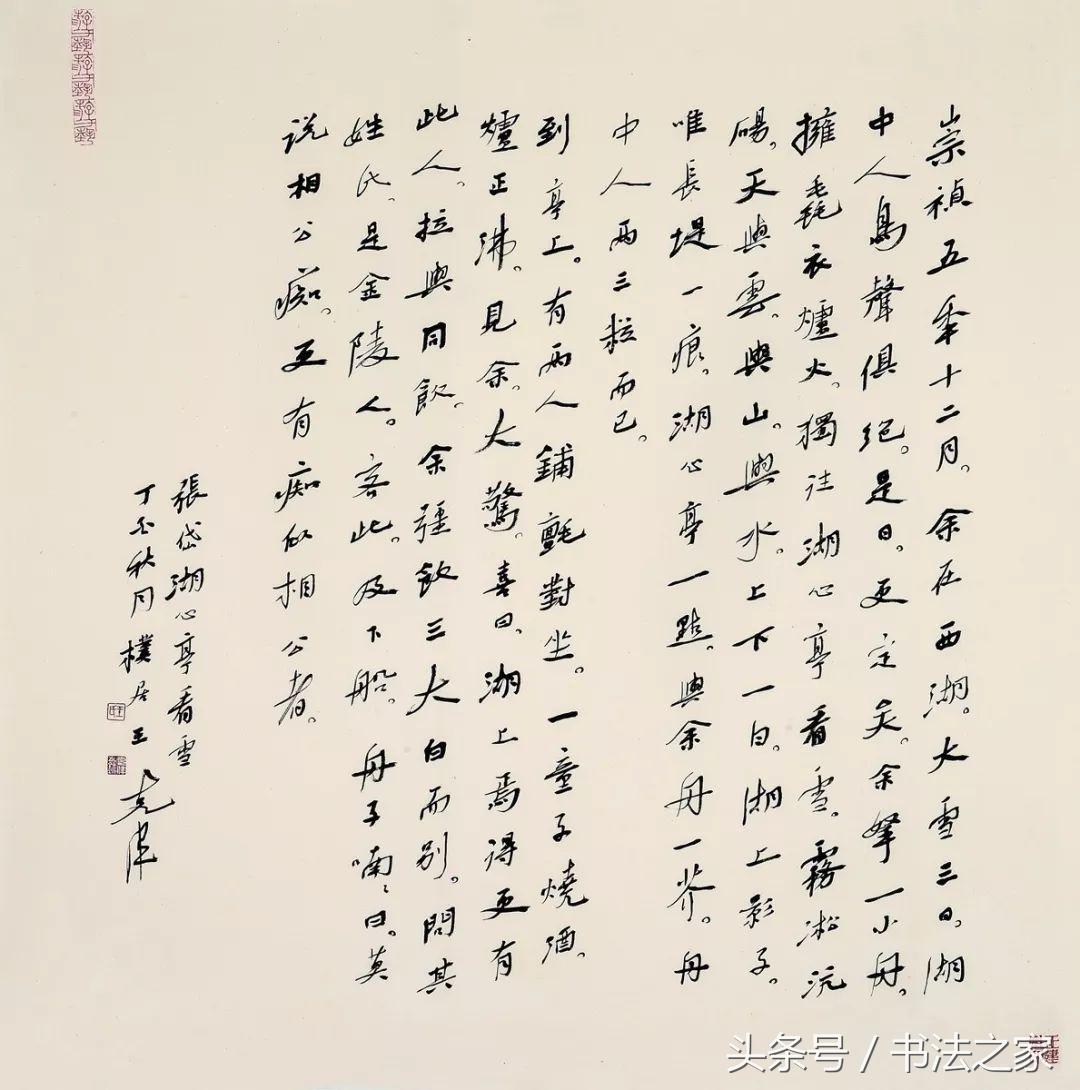 崇禎五年十二月。余在西湖。大雪三日。湖
中人鳥聲俱絕。是日。更定矣。余拏一小舟。
擁毳衣爐火。獨往湖心亭看雪。霧凇沆
碭。天與雲。與山。與水。上下一白。湖上影子。
唯長堤一痕。湖心亭一點。與余舟一芥。舟
中人兩三粒而已。
到亭上。有兩人鋪氈對坐。一童子燒酒。
爐正沸。見余。大驚。喜曰。湖上焉得更有
此人。拉與同飲。余彊飲三大白而別。問其
姓氏。是金陵人。客此。及下船。舟子喃〻曰。莫
说相公痴。更有痴似相公者。
張岱湖心亭看雪
丁酉秋月樸居王
头条号 / 书法之家